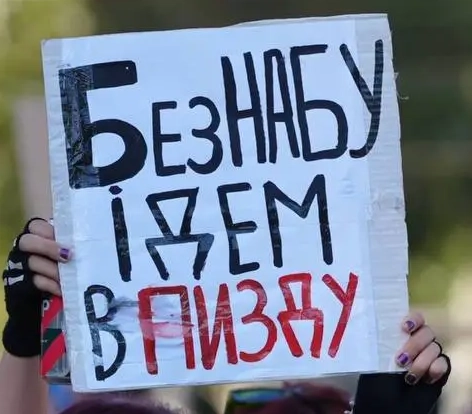 БЕЗ НАБУ
ІДЕМ
В ПИЗДУ